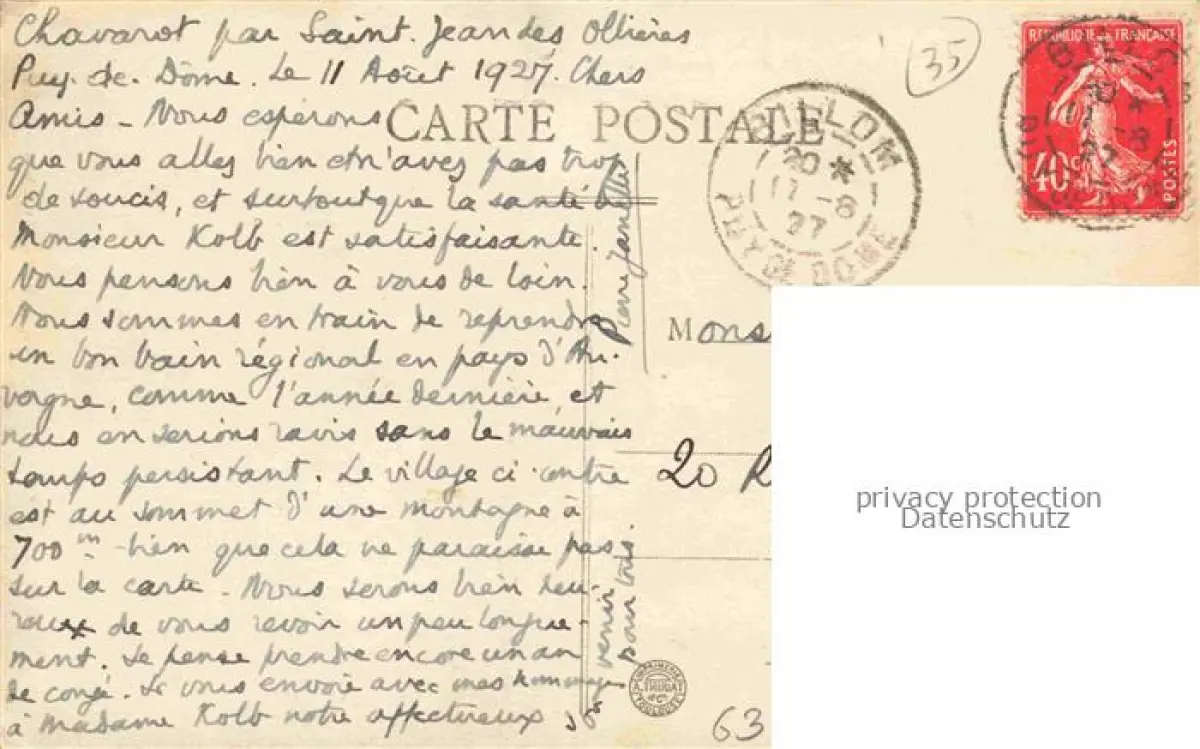 Chavarot par Saint Jean des Ollières
Puy-de-Dôme. Le 11 Août 1927. Chers
Amis - Nous espérons
que vous allez bien et n'avez pas trop
de soucis, et surtout que la santé de
Monsieur Kolb est satisfaisante.
Nous pensons bien à vous de loin.
Nous sommes en train de reprendre
un bon bain régional en pays d'Au-
vergne, comme l'année dernière, et
nous en serions ravis sans le mauvais
temps persistant. Le village ci-contre
est au sommet d'une montagne à
700 m bien que cela ne paraisse pas
sur la carte. Nous serons bien heu-
reux de vous revoir un peu longue-
ment. Je pense prendre encore un an
de congé. Je vous envoie avec mes hommages
à Madame Kolb notre affectueux
venir
pour tous.
Pierre
CARTE POSTALE
35
BILLOM
20 *
11 - 8
27
PUY DE DOME
REPUBLIQUE FRANÇAISE
40c
POSTES
Mons
20 R
privacy protection
Datenschutz
TOULOUSE
63